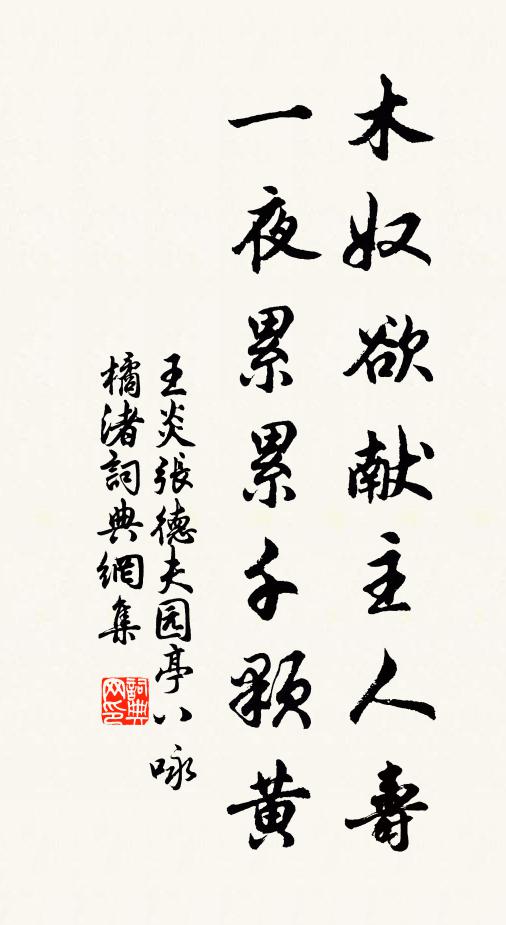 木奴欲献主人壽
一夜累累千顆黄
王炎張德夫园亭八咏
橘渚詞典網集
詞典网印